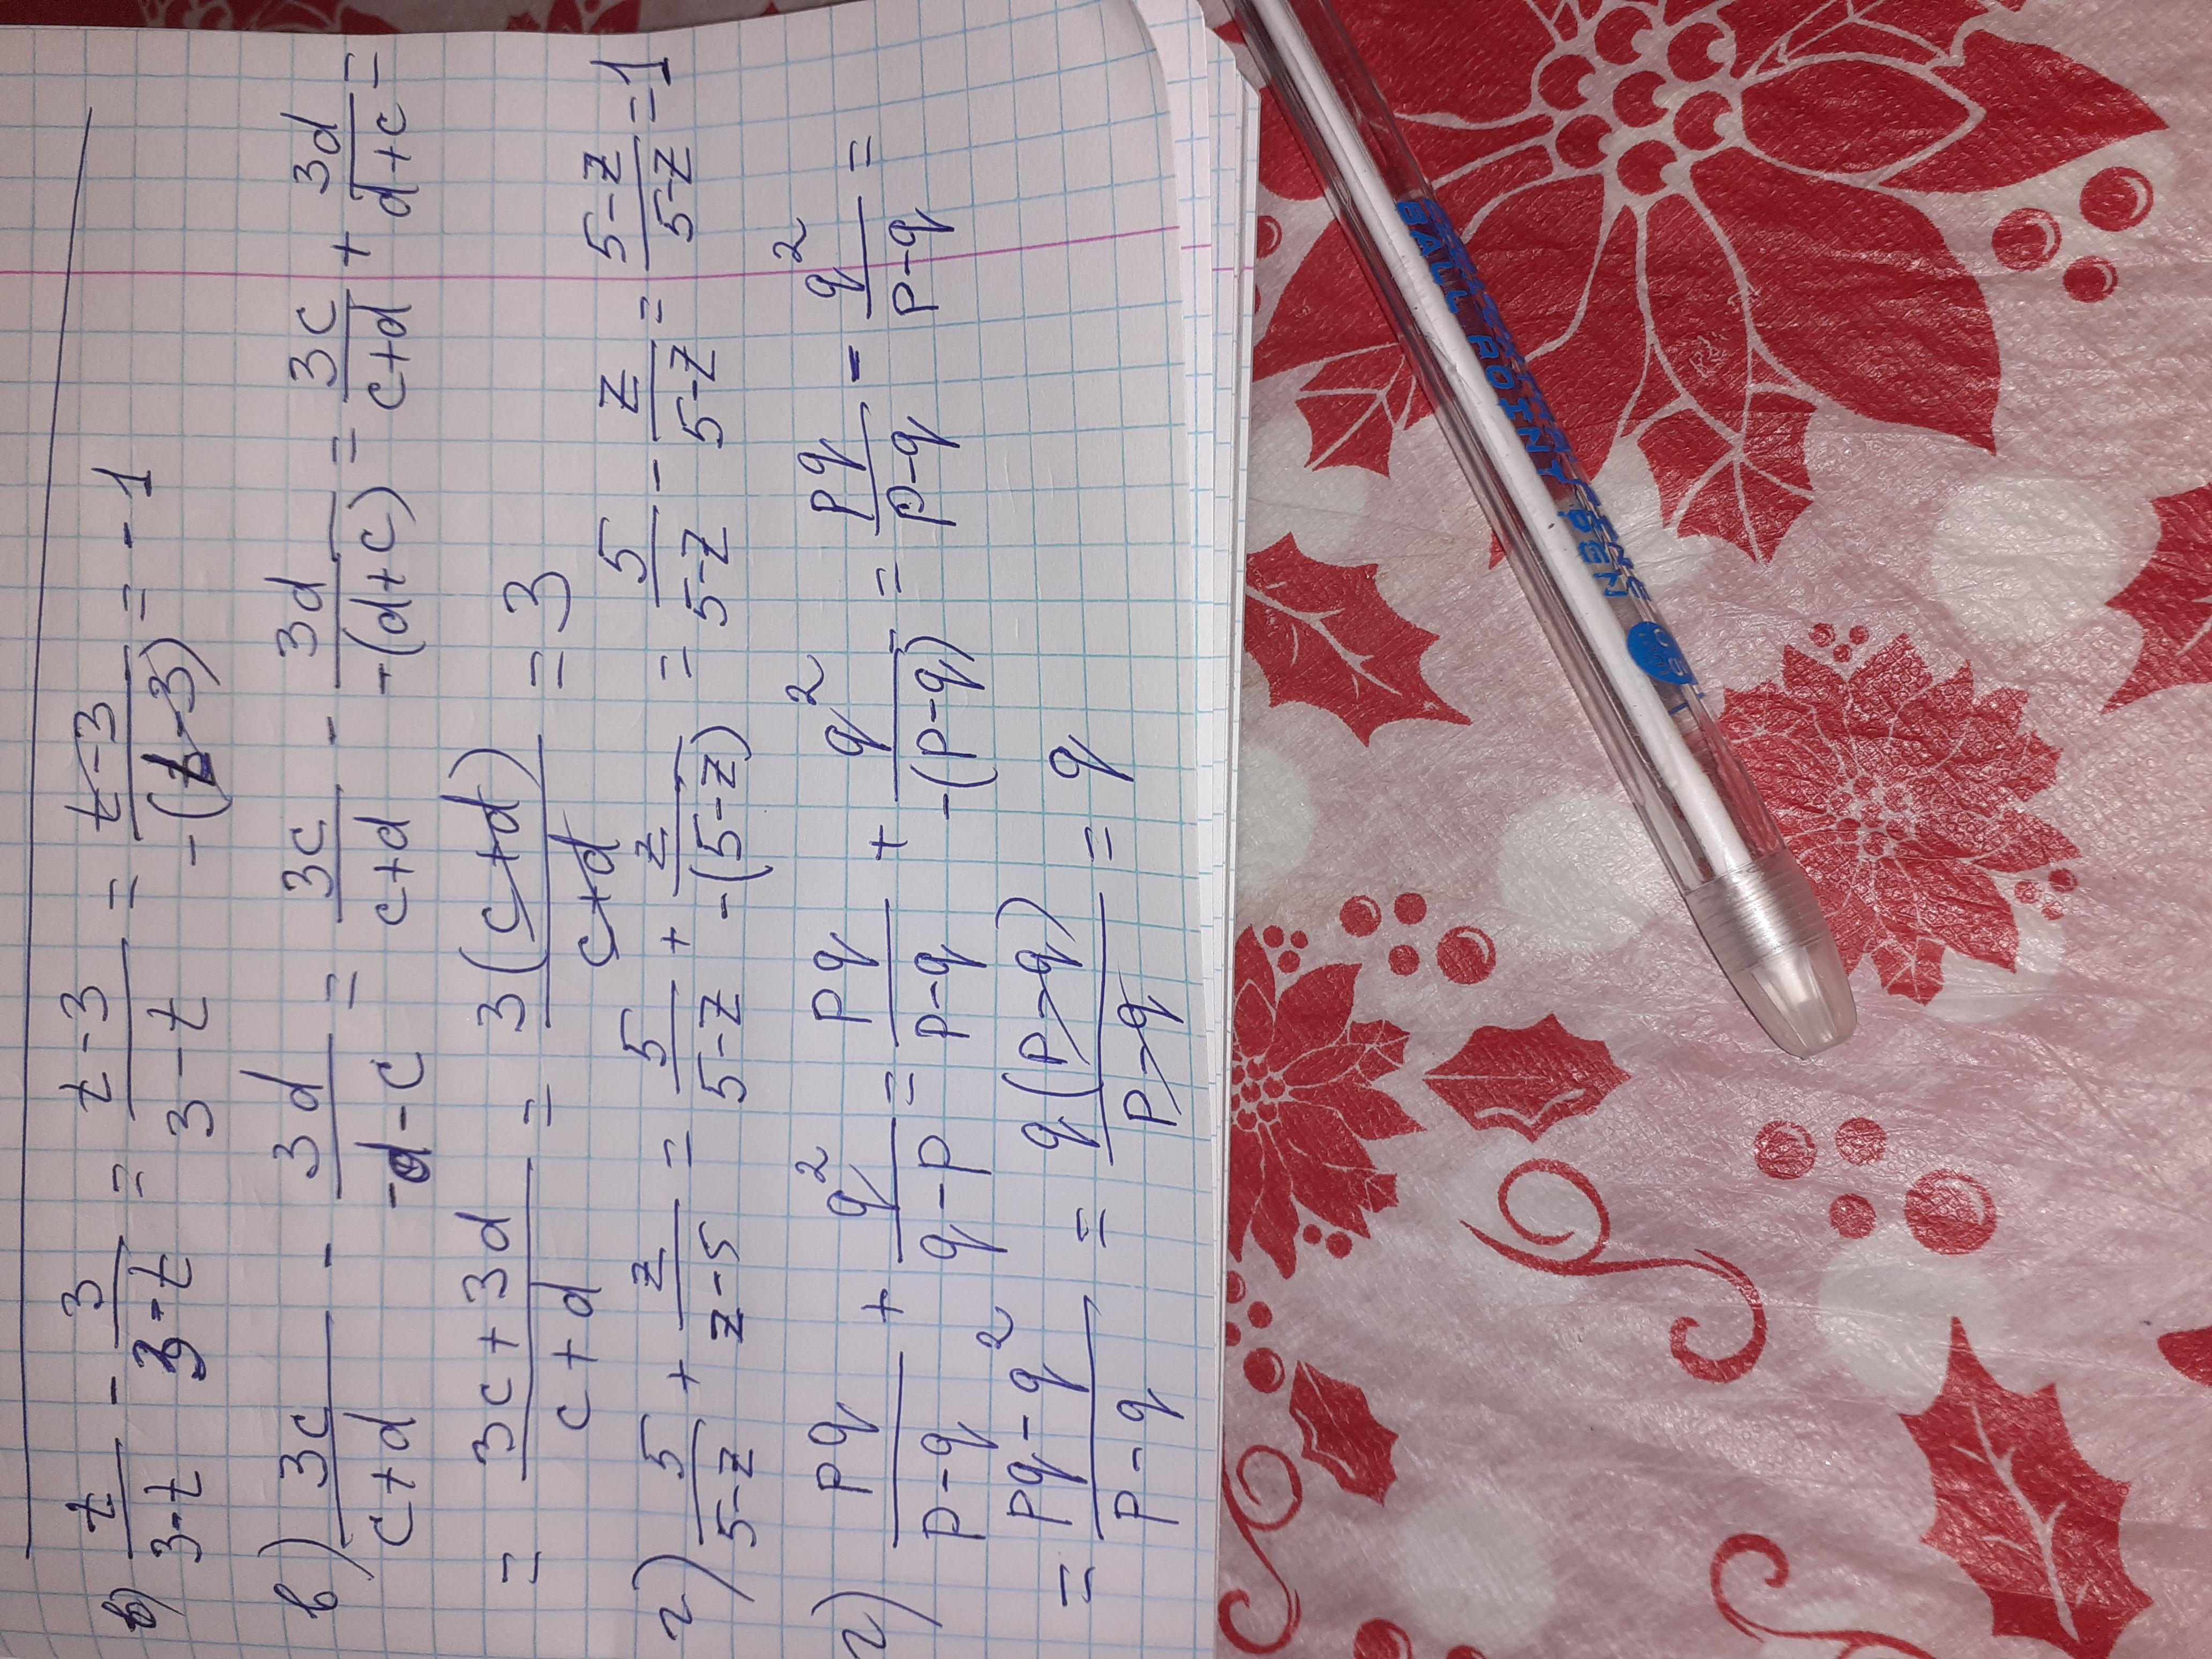 б) t/(3-t) - 3/(3-t) = (t-3)/(3-t) = (t-3)/(-(t-3)) = -1
в) 3c/(c+d) - 3d/(-d-c) = 3c/(c+d) - 3d/(-(d+c)) = 3c/(c+d) + 3d/(d+c) =
= (3c+3d)/(c+d) = 3(c+d)/(c+d) = 3
г) 5/(5-z) + z/(z-5) = 5/(5-z) + z/(-(5-z)) = 5/(5-z) - z/(5-z) = (5-z)/(5-z) = 1
г) pq/(p-q) + q²/(q-p) = pq/(p-q) + q²/(-(p-q)) = pq/(p-q) - q²/(p-q) =
= (pq-q²)/(p-q) = q(p-q)/(p-q) = q
BALL POINT PEN